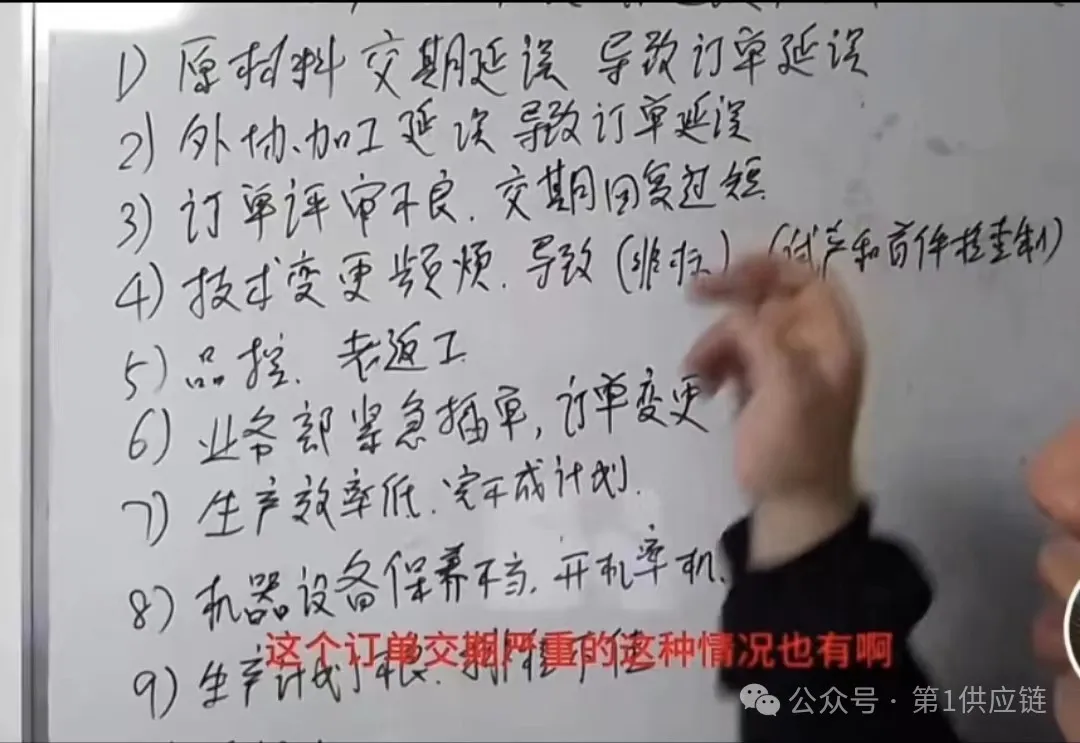 1) 原材料 交期延误 导致订单延误
2) 外协、加工延误 导致订单延误
3) 订单评审不良. 交期回复过短.
4) 技术变更频烦. 导致 (非标) (试产和首件检查制)
5) 品控. 老返工.
6) 业务部 紧急插单, 订单变更
7) 生产效率低. 完不成计划.
8) 机器设备保养不当. 开机率机.
这个订单交期严重的这种情况也有啊
9) 生产计划不良.
公众号 · 第1供应链